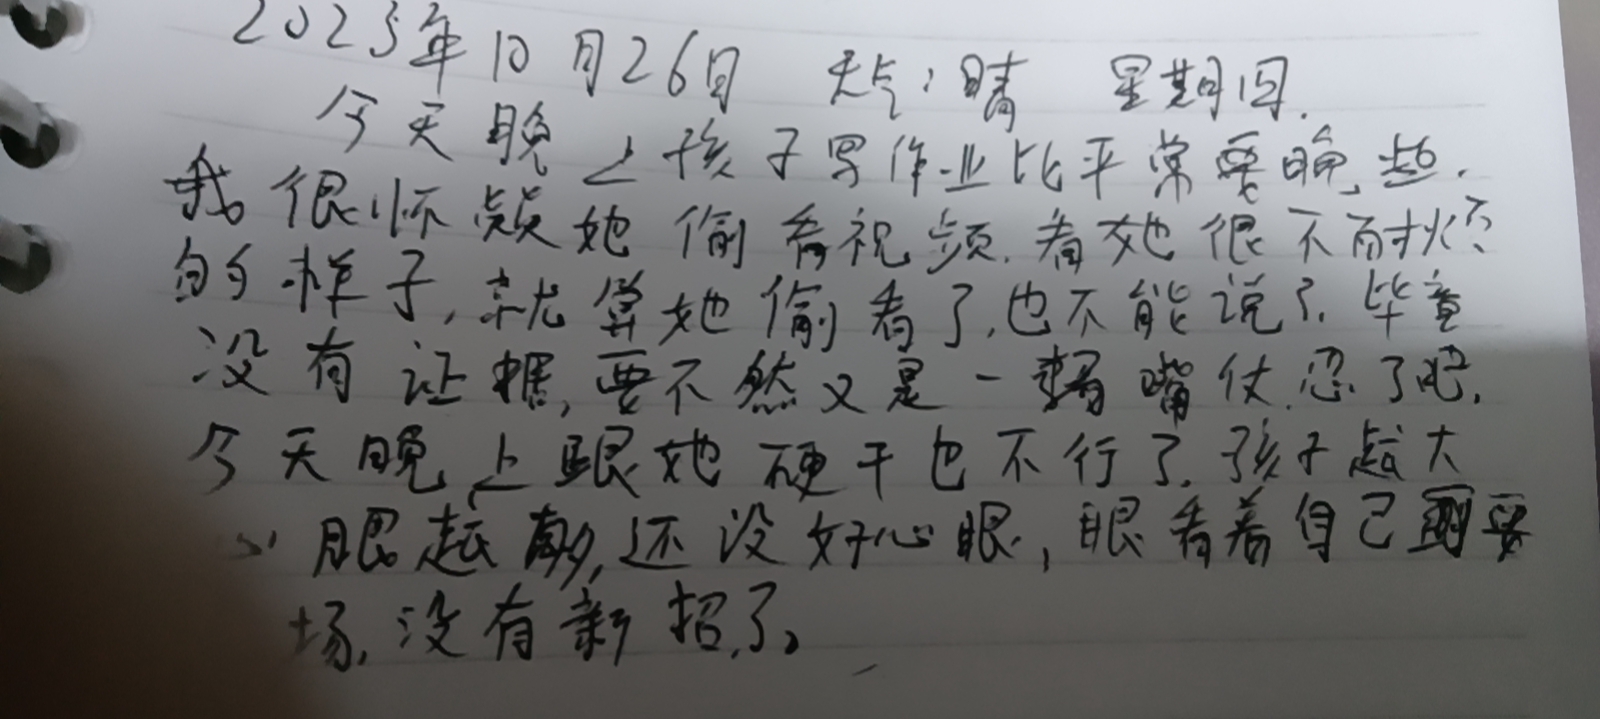 2023年10月26日 天气:晴 星期四.
今天晚上孩子写作业比平常要晚些.
我很怀疑她偷看视频.看她很不耐烦
的样子,就算她偷看了,也不能说了.毕竟
没有证据,要不然又是一場嘴仗.忍了吧.
今天晚上跟她硬干也不行了.孩子越大
心眼越多,还没好心眼,眼看着自己要
场,没有新招了。